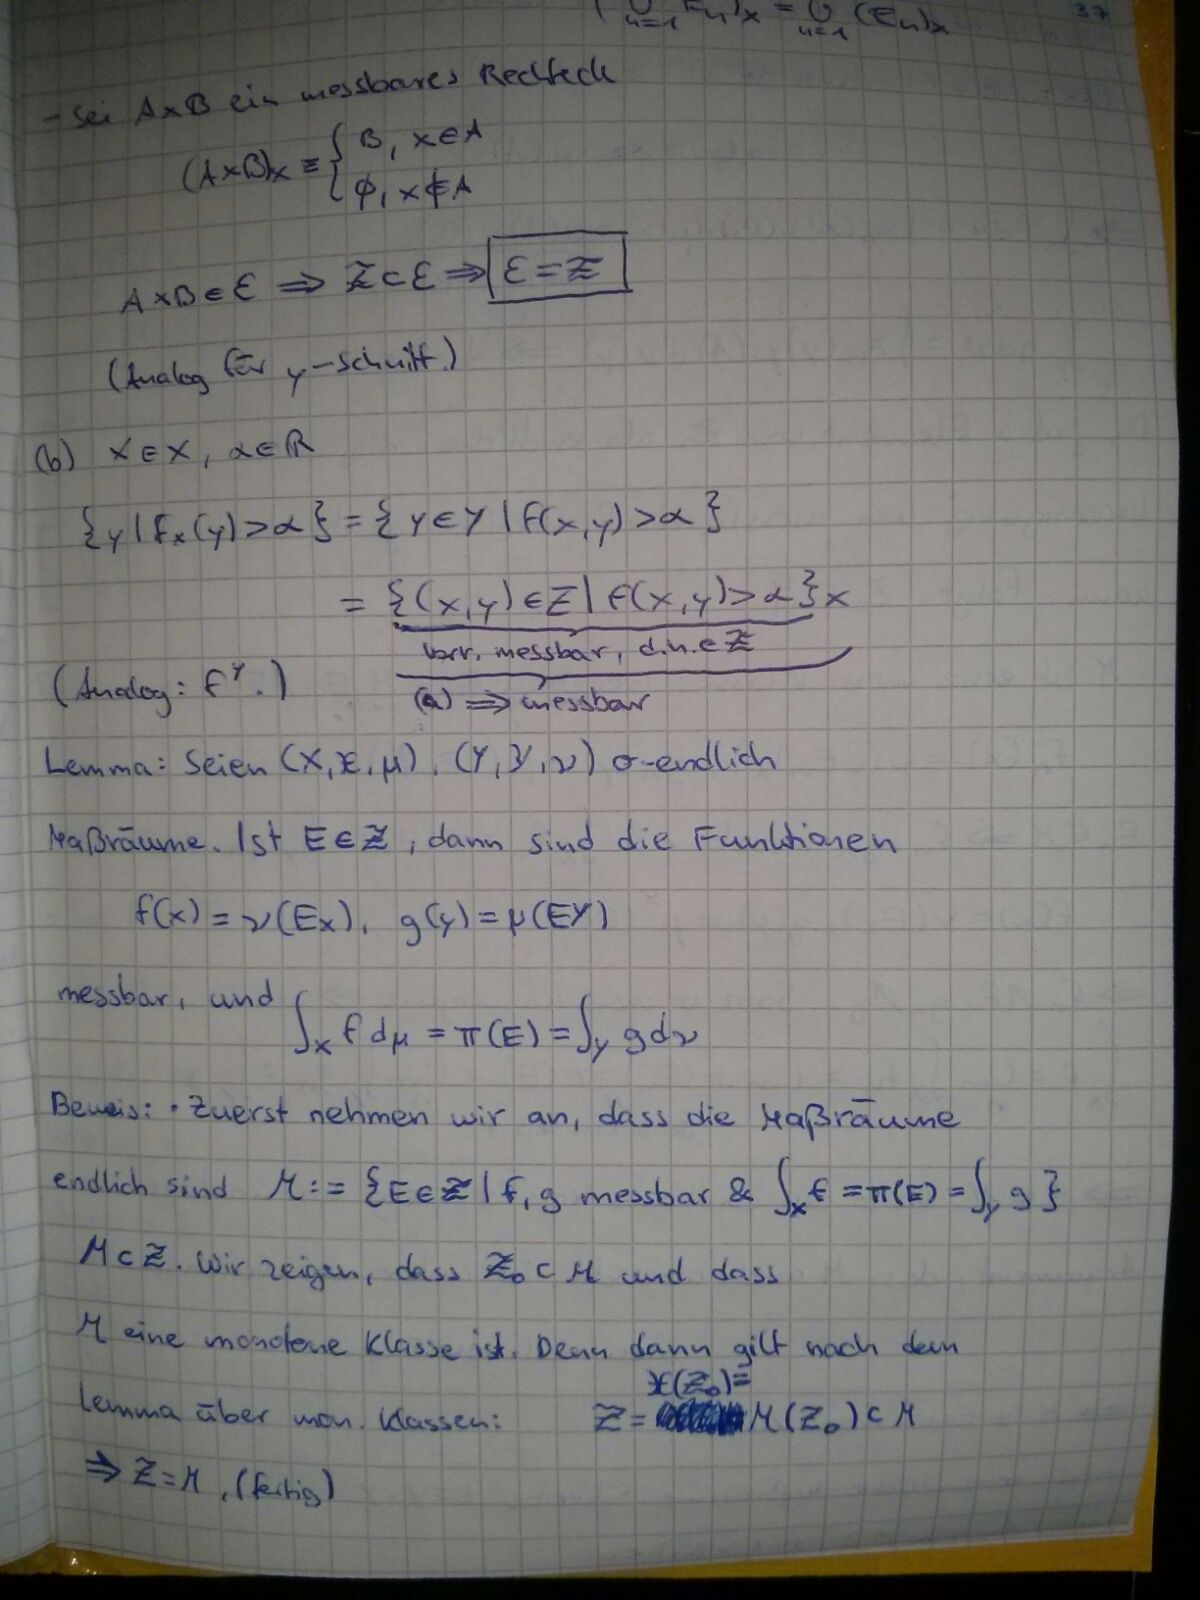 (⋃_{n=1} E_n)_x = ⋃_{n=1} (E_n)_x 37
- Sei A×B ein messbares Rechteck
(A×B)_x = { B, x∈A
∅, x∉A
A×B∈ℰ ⇒ Z⊂ℰ ⇒ ℰ=Z
(Analog für y-Schnitt.)
(b) x∈X, α∈ℝ
{y | f_x(y)>α} = {y∈Y | f(x,y)>α}
= {(x,y)∈Z | f(x,y)>α}_x
Vorr. messbar, d.h. ∈Z
(Analog: f^y.) (a) ⇒ messbar
Lemma: Seien (X,𝒳,μ), (Y,𝒴,ν) σ-endlich
Maßräume. Ist E∈Z, dann sind die Funktionen
f(x) = ν(E_x), g(y) = μ(E^y)
messbar, und
∫_X f dμ = π(E) = ∫_Y g dν
Beweis: · Zuerst nehmen wir an, dass die Maßräume
endlich sind M := {E∈Z | f, g messbar & ∫_X f = π(E) = ∫_Y g}
M⊂Z. Wir zeigen, dass Z_0⊂M und dass
M eine monotone Klasse ist. Denn dann gilt nach dem
𝒳(Z_0)=
Lemma über mon. Klassen: Z = M(Z_0)⊂M
⇒ Z=M, (fertig)